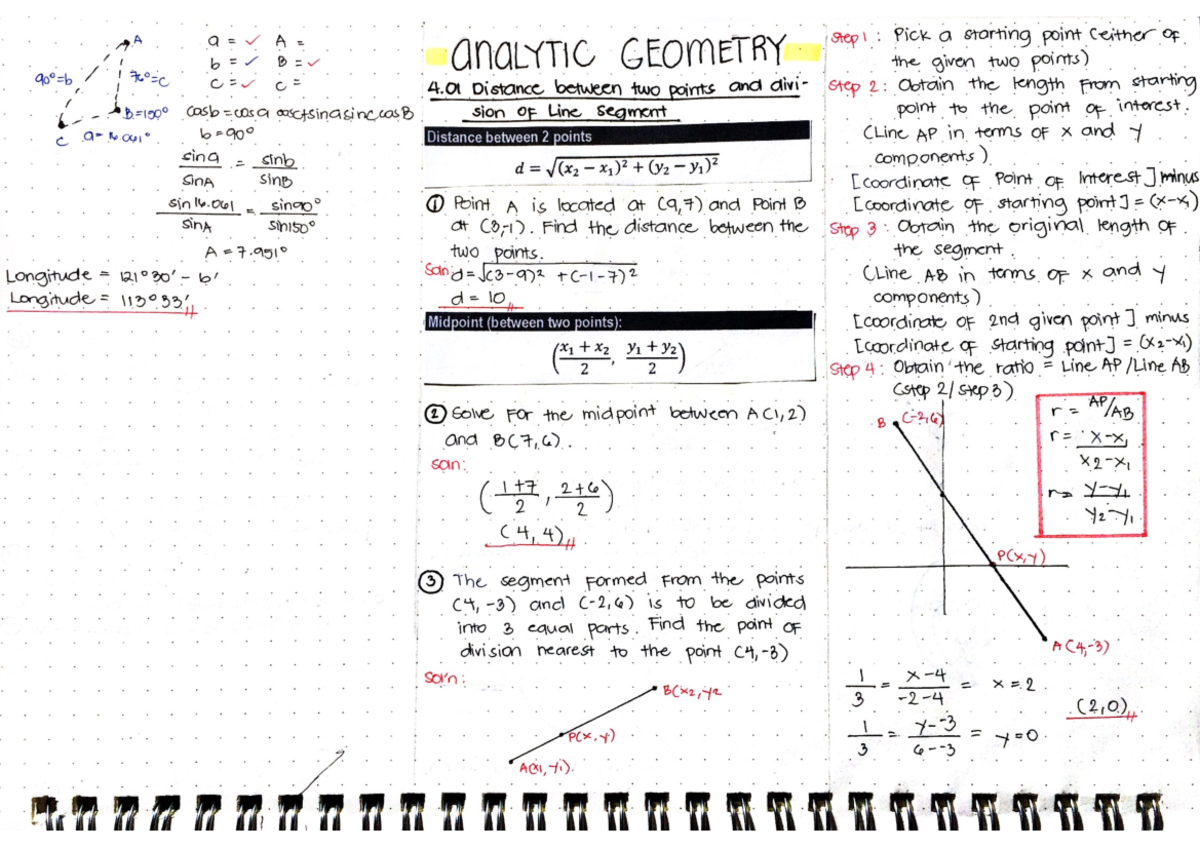 A
90°=b
76°=c
B=150°
a= 16.061°
C
a = ✓ A =
b = ✓ B = ✓
c = ✓ C =
cosb=cosa cosc+sina sinc cosB
b=90°
sina/sinA = sinb/sinB
sin16.061/sinA = sin90°/sin150°
A = 7.951°
Longitude = 121°30' - b'
Longitude = 113°33'
ANALYTIC GEOMETRY
4.01 Distance between two points and divi-
sion of Line Segment
Distance between 2 points
d = √(x₂ − x₁)² + (y₂ − y₁)²
① Point A is located at (9,7) and Point B
at (3,-1). Find the distance between the
two points.
Soln: d=√(3-9)² + (-1-7)²
d = 10
Midpoint (between two points):
(x₁ + x₂/2, y₁ + y₂/2)
② Solve for the midpoint between A(1,2)
and B(7,6).
Soln:
(1+7/2, 2+6/2)
(4,4)
③ The segment formed from the points
(4,-3) and (-2,6) is to be divided
into 3 equal parts. Find the point of
division nearest to the point (4,-3)
Sol'n:
B(x2,y2
P(x,y)
A(x1,y1).
Step 1: Pick a starting point (either of
the given two points)
Step 2: Obtain the length from starting
point to the point of interest.
(Line AP in terms of x and y
components)
[coordinate of Point of Interest] minus
[coordinate of starting point] = (x-x₁)
Step 3: Obtain the original length of
the segment.
(Line AB in terms of x and y
components)
[coordinate of 2nd given point] minus
[coordinate of starting point] = (x₂-x₁)
Step 4: Obtain the ratio = Line AP/Line AB
(step 2/step 3)
B (-2,6)
r = AP/AB
r = x-x₁/x2-x₁
r= y-y₁/y₂-y₁
P(x,y)
A(4,-3)
1/3 = x-4/-2-4 = x=2
(2,0)
1/3 = y--3/6--3 = y=0